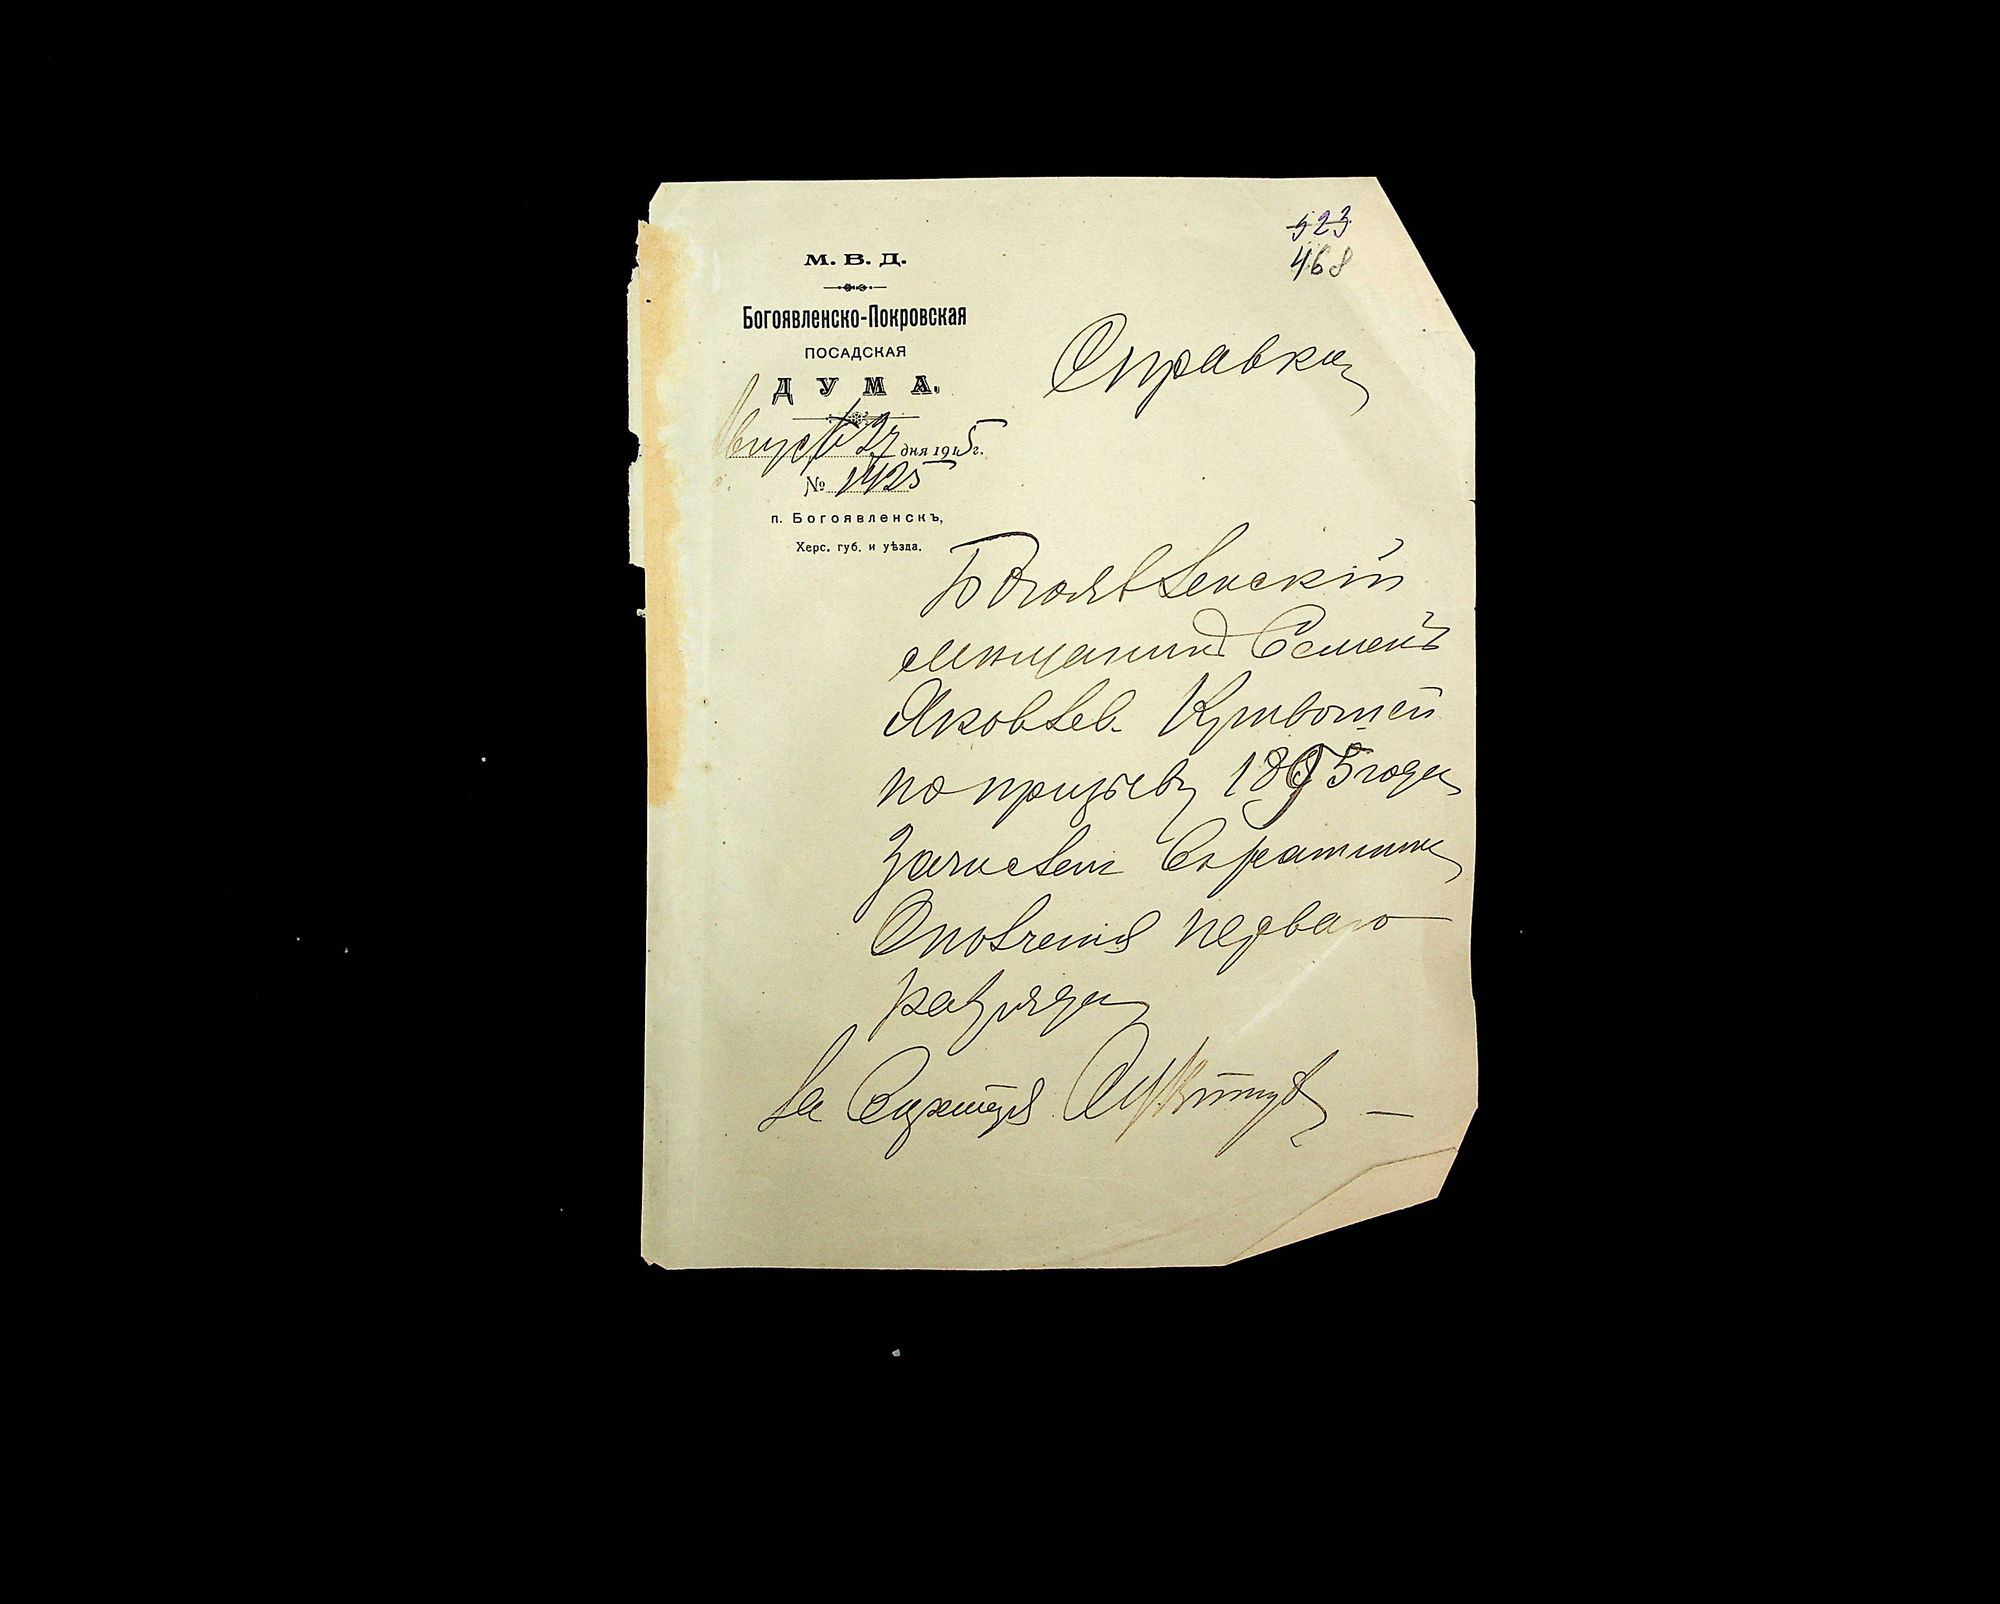 523
468
М. В. Д.
Богоявленско-Покровская
ПОСАДСКАЯ
ДУМА.
Августа 27 дня 1915 г.
№ 1425
п. Богоявленскъ,
Херс. губ. и уѣзда.
Справка
Богоявленскій
мещанинъ Семенъ
Яковлев. Кривошей
по призыву 1895 года
зачислен в ратники
Ополченія перваго
разряда
За Секретаря